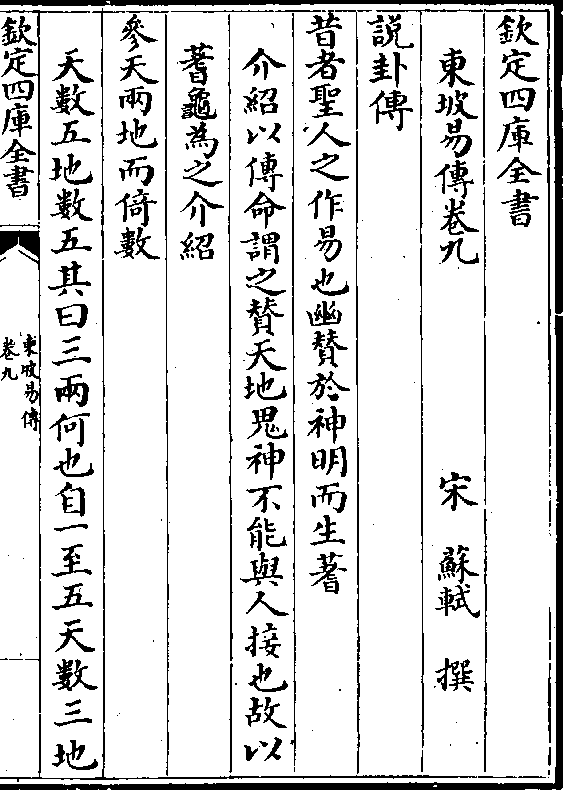 欽定四庫全書
東坡易傳卷九　宋　蘇軾　撰
說卦傳
昔者聖人之作易也幽贊於神明而生蓍
介紹以傳命謂之贊天地鬼神不能與人接也故以
蓍龜為之介紹
參天兩地而倚數
天數五地數五其曰三兩何也自一至五天數三地
欽定四庫全書
東坡易傳
卷九